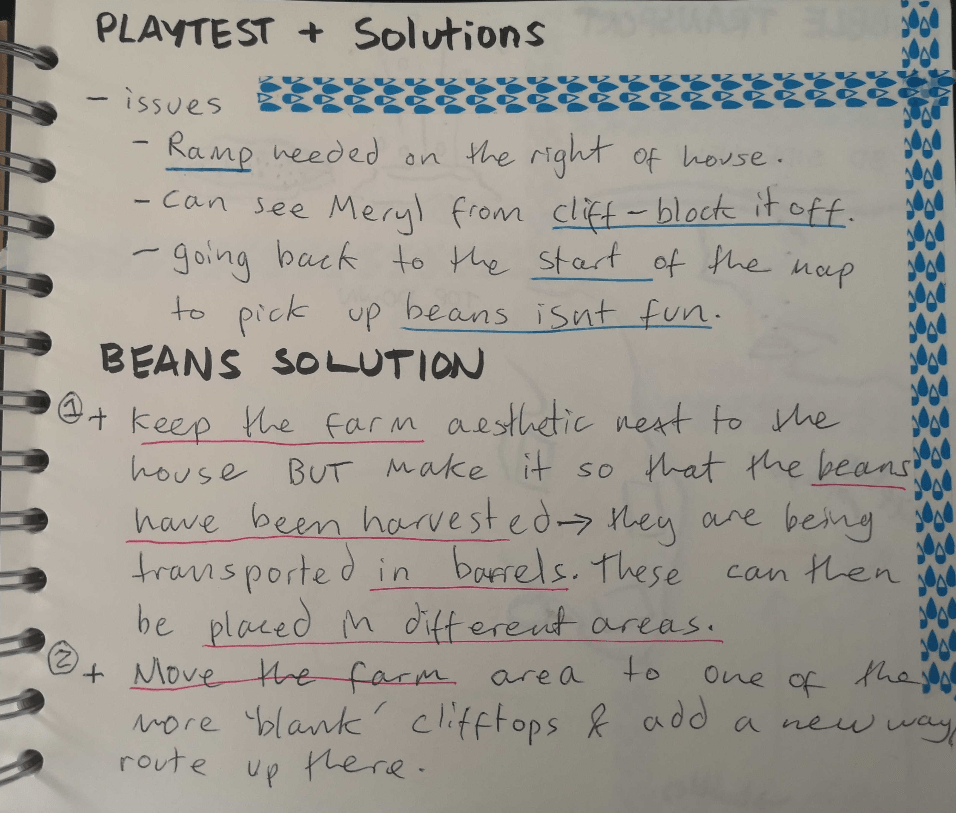 PLAYTEST + Solutions
- issues
- Ramp needed on the right of house.
- Can see Meryl from cliff - block it off.
- going back to the start of the map
to pick up beans isnt fun.
BEANS SOLUTION
① + Keep the farm aesthetic next to the
house BUT make it so that the beans
have been harvested → they are being
transported in barrels. These can then
be placed in different areas.
② + Move the farm area to one of the
more 'blank' clifftops & add a new way/
route up there.